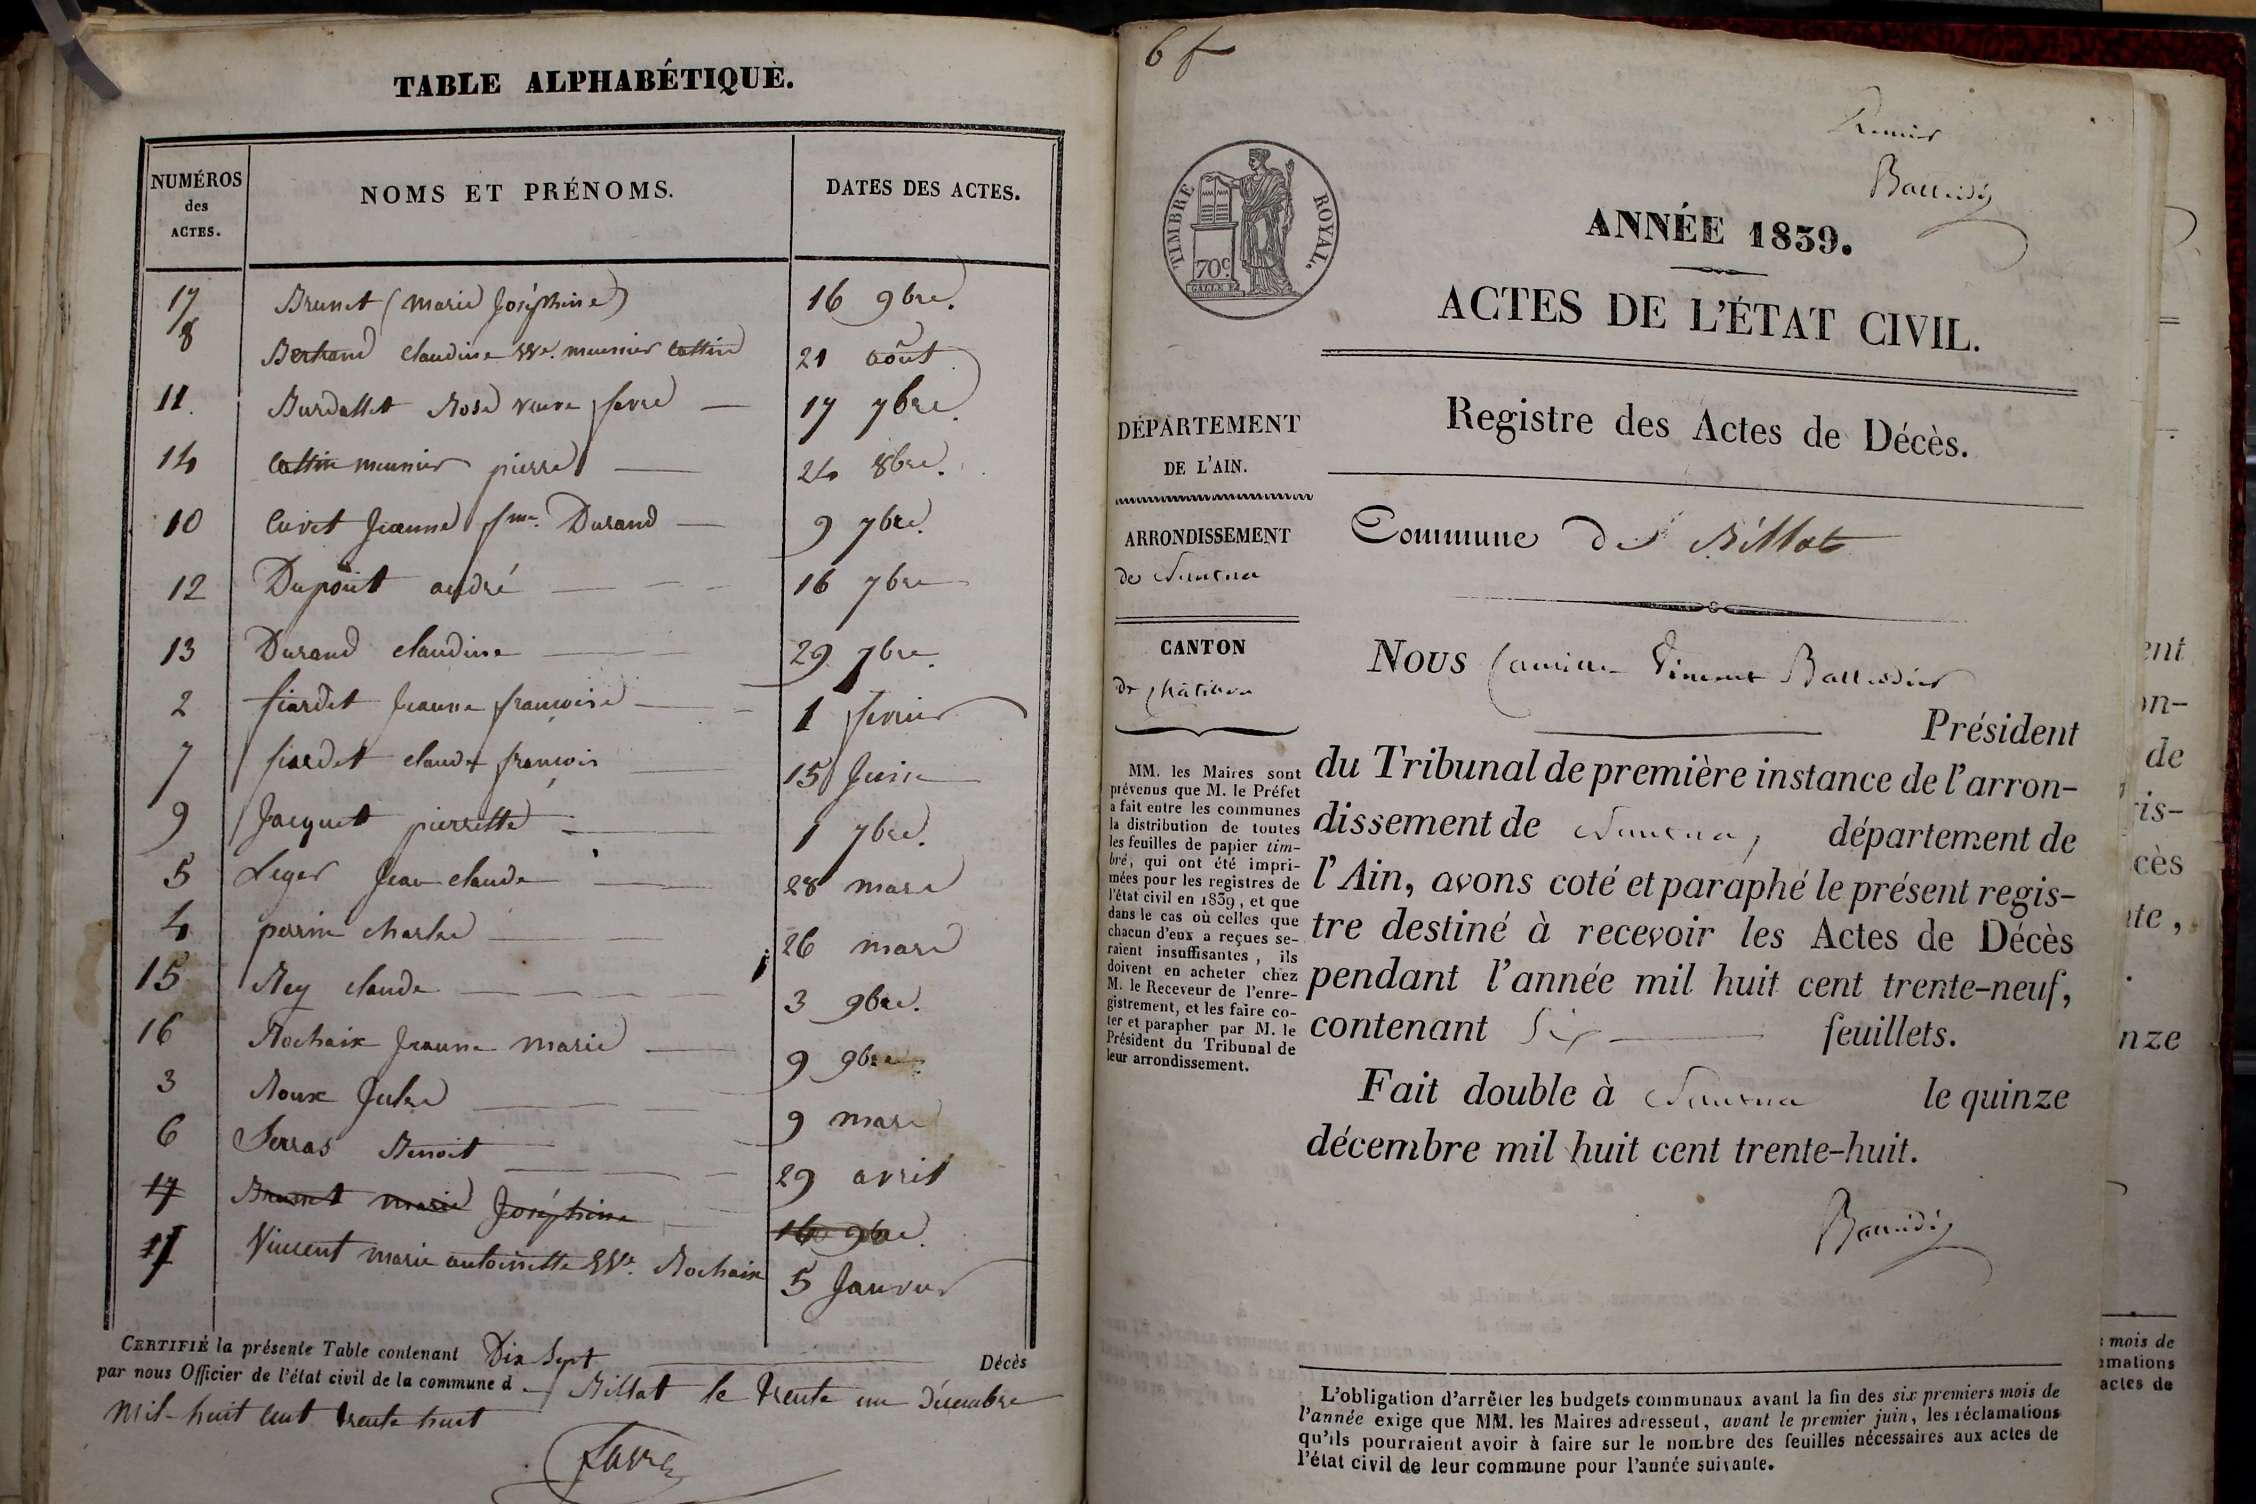 TABLE ALPHABÉTIQUE.
NUMÉROS des ACTES. NOMS ET PRÉNOMS. DATES DES ACTES.
17 Brunet (marie Joséphine) 16 9bre.
8 Bertrand claudine Vve. meunier cattin 21 août
11. Burdallet Rose veuve favre 17 7bre.
14 Cattin meunier pierre 24 8bre.
10 Curet Jeanne fme. Durand 9 7bre.
12 Dupont andré 16 7bre
13 Durand claudine 29 7bre.
2 fiardet Jeanne françoise 1 fevrier
7 fiardet claude françois 15 Juin
9 Jacquet pierrette 1 7bre.
5 Leger Jean claude 28 mars
4 perrin charles 26 mars
15 Rey claude 3 9bre.
16 Rochaix Jeanne marie 9 9bre.
3 Roux Jules 9 mars
6 Serras Benoit 29 avril
17 Brunet marie Joséphine 16 9bre.
1 Vincent marie antoinette Vve. Rochaix 5 Janvier
CERTIFIÉ la présente Table contenant Dix Sept Décès
par nous Officier de l'état civil de la commune d Billat le trente un Décembre
mil-huit cent trente huit
Favre
6 f
Premier
Ballaidier
TIMBRE ROYAL.
70c.
ANNÉE 1839.
ACTES DE L'ÉTAT CIVIL.
Registre des Actes de Décès.
DÉPARTEMENT
DE L'AIN.
ARRONDISSEMENT
de Nantua
CANTON
de châtillon
MM. les Maires sont
prévenus que M. le Préfet
a fait entre les communes
la distribution de toutes
les feuilles de papier tim-
bré, qui ont été impri-
mées pour les registres de
l'état civil en 1839, et que
dans le cas où celles que
chacun d'eux a reçues se-
raient insuffisantes, ils
doivent en acheter chez
M. le Receveur de l'enre-
gistrement, et les faire co-
ter et parapher par M. le
Président du Tribunal de
leur arrondissement.
Commune de Billat
Nous Camille Vincent Ballaidier
Président
du Tribunal de première instance de l'arron-
dissement de Nantua, département de
l'Ain, avons coté et paraphé le présent regis-
tre destiné à recevoir les Actes de Décès
pendant l'année mil huit cent trente-neuf,
contenant Six feuillets.
Fait double à Nantua le quinze
décembre mil huit cent trente-huit.
Ballaidier
L'obligation d'arrêter les budgets communaux avant la fin des six premiers mois de
l'année exige que MM. les Maires adressent, avant le premier juin, les réclamations
qu'ils pourraient avoir à faire sur le nombre des feuilles nécessaires aux actes de
l'état civil de leur commune pour l'année suivante.
ent
on-
de
is-
cès
te,
nze
mois de
mations
actes de